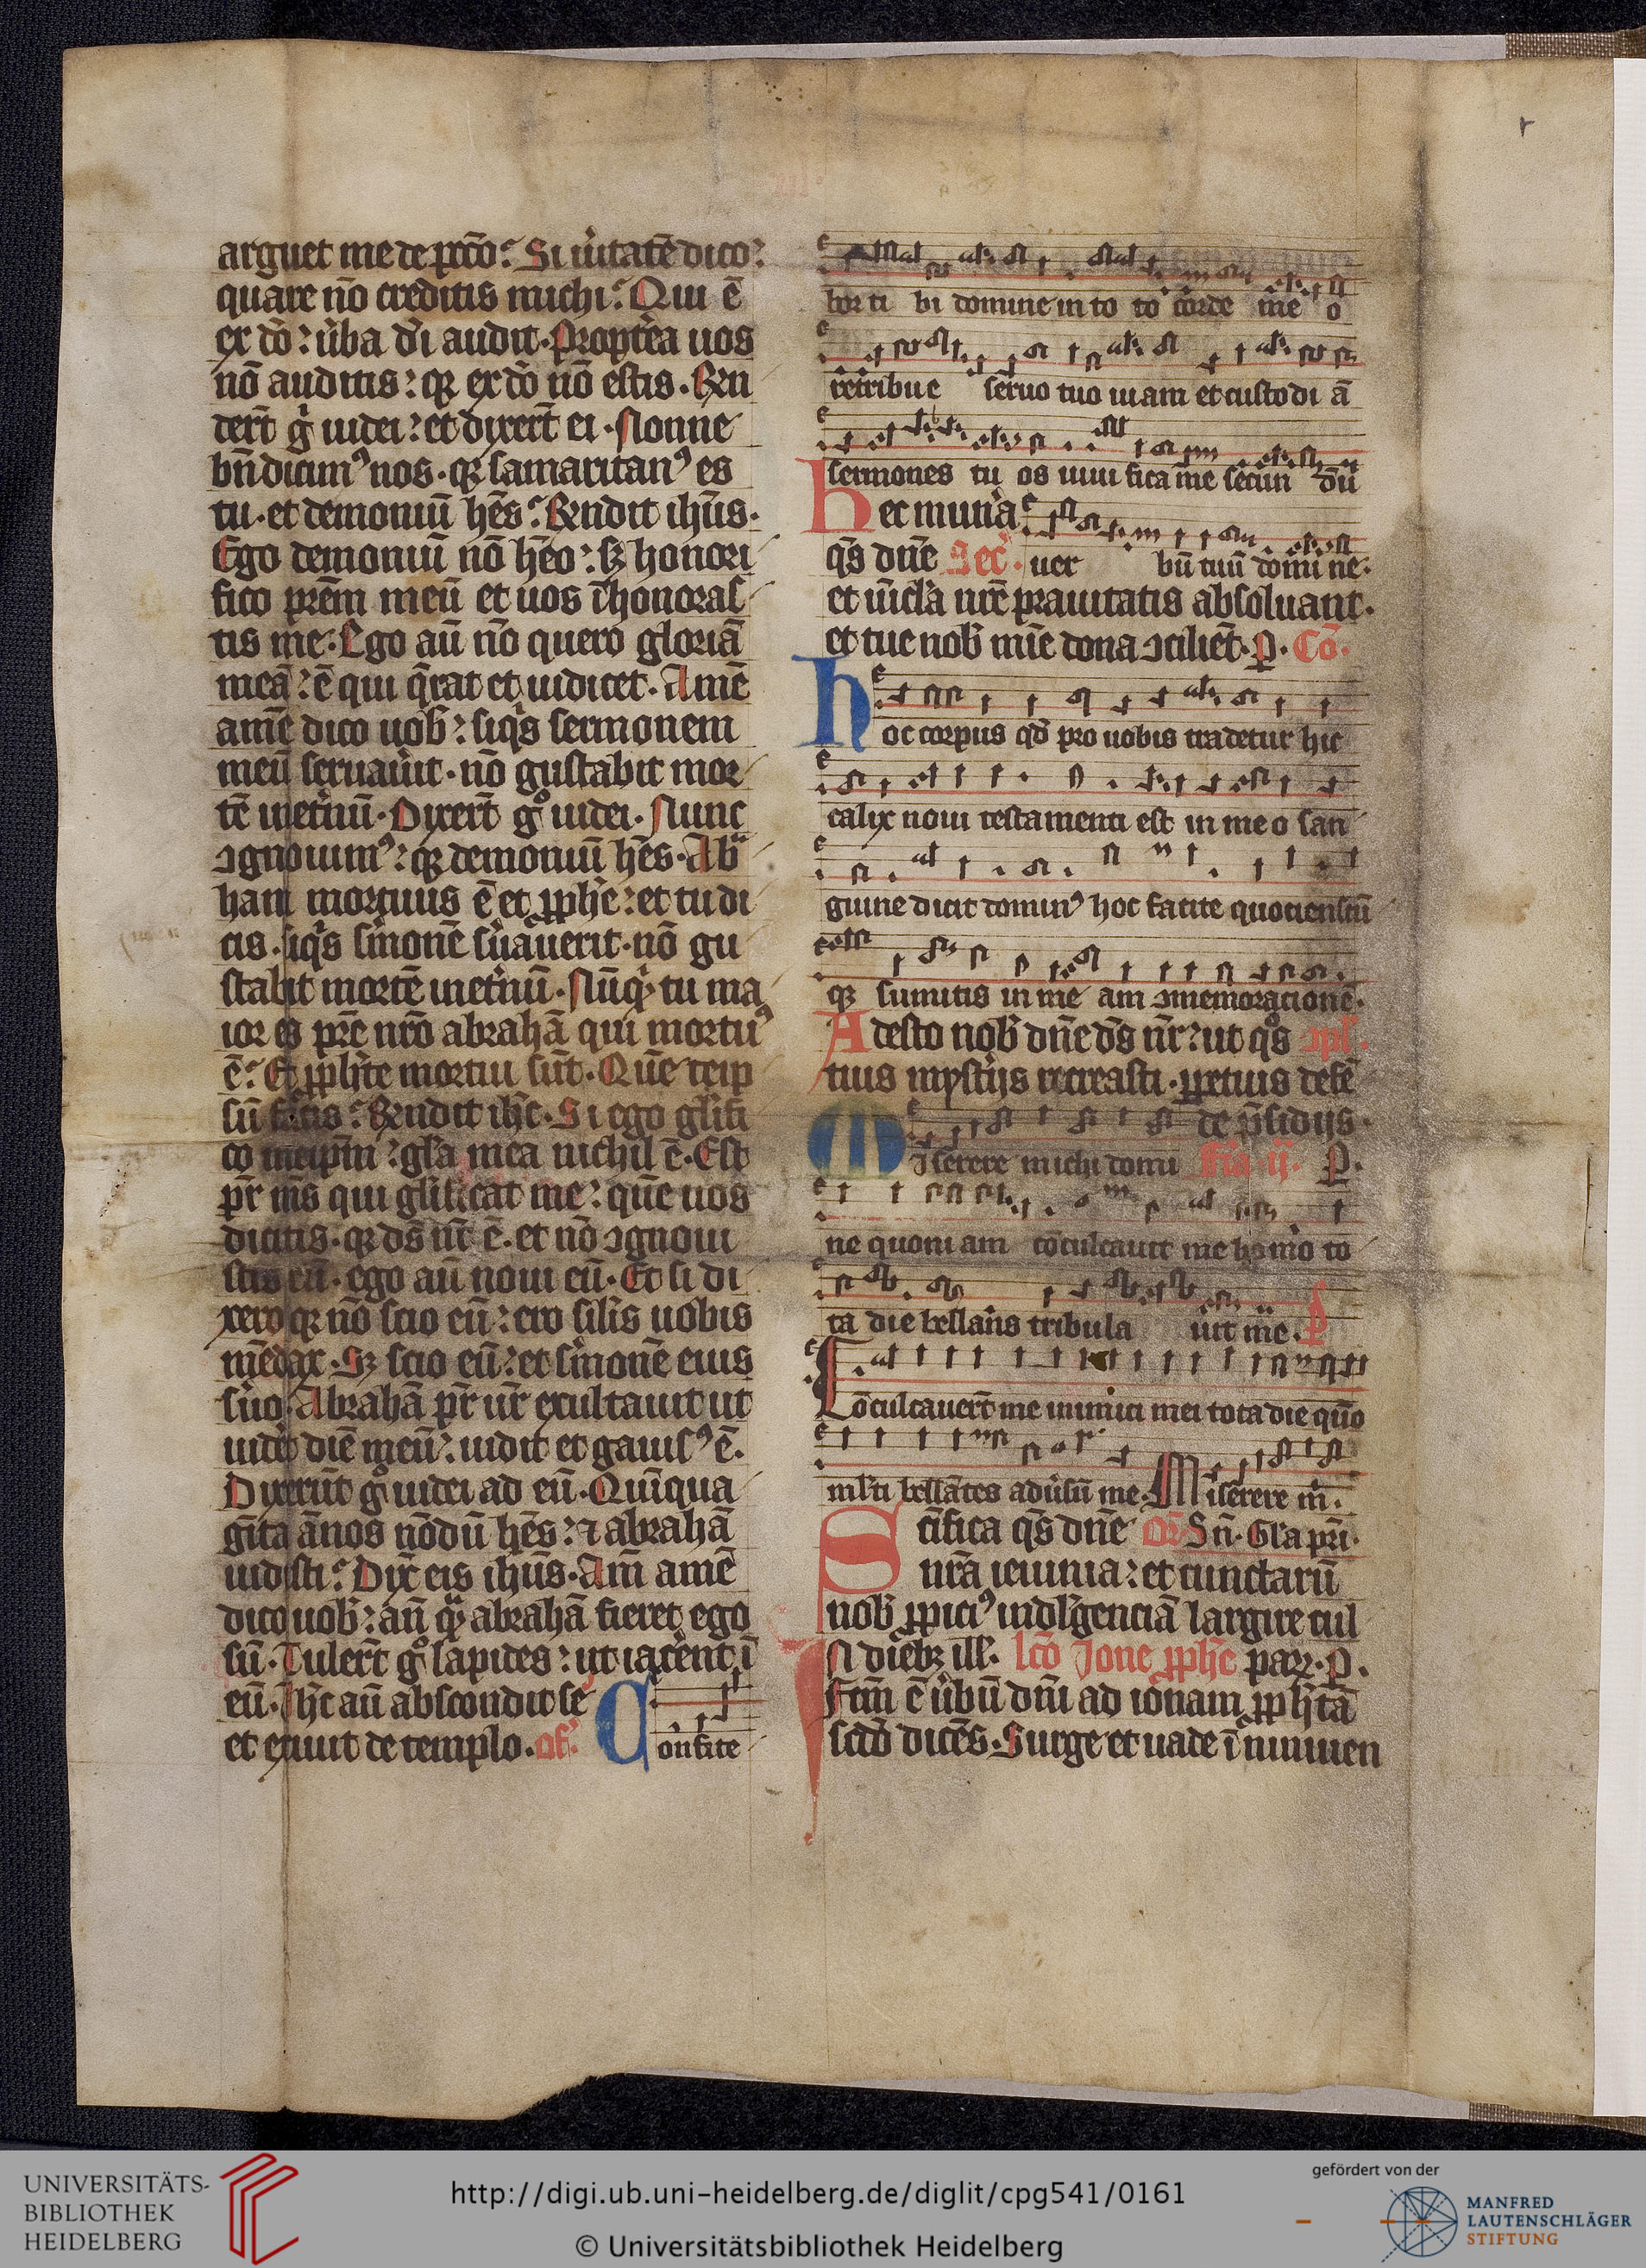 arguet me de pcc̄o? Si ůitatē dico?
quare nō creditis michi? Qui ē
ex dō: ůba dī audit. Propt̄ea uos
nō auditis: qꝫ ex dō nō estis. Rn̄
dert̄ g̊ iudei: et dixert̄ ei. Nonne
bn̄dicimꝰ nos. qꝫ samaritanꝰ es
tu. et demoniū hēs? Rn̄dit ihūs.
Ego demoniū nō hēo: sꝫ honori
fico prēm meū et uos īhonoras
tis me. Ego aū nō quero gloriā
meā: ē qui q̄rat et iudicet. Amē
amē dico uob̄: siq̊s sermonem
meū seruaůit. nō gustabit mor
tē inet̓nū. Dixert̄ g̊ iudei. Nunc
ꝯgnouimꝰ: qꝫ demoniū hēs. Abra
ham mortuus ē et ꝓphē: et tu di
cis. siq̊s s̓monē s̓uauerit. nō gu
stabit mortē inet̓nū. Nūq̊ tu ma
ior es pr̄e nr̄o abrahā qui mortuꝰ
ē? Et ꝓphēte mortui sūt. Quē teip̄
sū facis? Rn̄dit ihc̄. Si ego glīfi
co meipm̄: gl̄a mea nichil ē. Est
pr̄ ms̄ qui glīficat me: quē uos
dicitis. qꝫ ds̄ nr̄ ē. et nō ꝯgnoui
stis eū. ego aū noui eū. Et si di
xero qꝫ nō scio eū: ero sil̄is uobis
mēdax. Sꝫ scio eū: et s̓monē eius
s̓uo. Abrahā pr̄ ur̄ exultauit ut
uidet diē meū: uidit et gauisꝰ ē.
Dixerūt g̊ iudei ad eū. Quīqua
gīta ānos nōdū hēs: ⁊ abrahā
uidisti? Dix̄ eis ihūs. Am̄ amē
dico uob̄: an̄ q̊ abrahā fieret ego
sū. Tulert̄ g̊ lapides: ut iacēnt ī
eū. Ihc̄ aū abscondit se
et exiuit de templo. Of. Confite
bor ti bi domine in to to corde me o
retribue seruo tuo uiam et custodi ā
sermones tu os uiui fica me secun dū
Hec mun̓a
q̄s dn̄e Sec̄. uer bū tuū domi ne.
et ūicl̄a nr̄e prauitatis absoluant.
et tue nob̄ mīe dona ꝯciliēt. P. Cō.
Hoc corpus qd̄ pro uobis tradetur hic
calix noui testamenti est in me o san
guine dicit dominꝰ hoc facite quociensciū
qꝫ sumitis in me am ꝯmemoracionē.
Adesto nob̄ dn̄e ds̄ nr̄: ut q̊s ꝯpl̄.
tuis mysterijs recreasti. ꝑpetuis defē
de p̄sidijs.
Miserere michi domi Fia. ij. P.
ne quoni am cōculcauit me homo to
ta die bellans tribula uit me. P
Cōculcauert̄ me inimici mei tota die quō
ml̄ti bellātes adůsū me. Miserere m̄.
Scīfica q̄s dn̄e Or̄. Sn̄. Gl̄a pr̄i.
nr̄a ieiunia: et cunctarū
nob̄ ꝓpiciꝰ indl̓genciā largire cul
In dieb̄ꝫ ill̄. Lc̄o Jone ꝓphē parꝝ. P.
Fctm̄ ē ůbū dn̄i ad ionam ꝓphētā
scd̄o dicēs. Surge et uade ī niniuen
UNIVERSITÄTS-
BIBLIOTHEK
HEIDELBERG
http://digi.ub.uni-heidelberg.de/diglit/cpg541/0161
© Universitätsbibliothek Heidelberg
gefördert von der
MANFRED
LAUTENSCHLÄGER
STIFTUNG